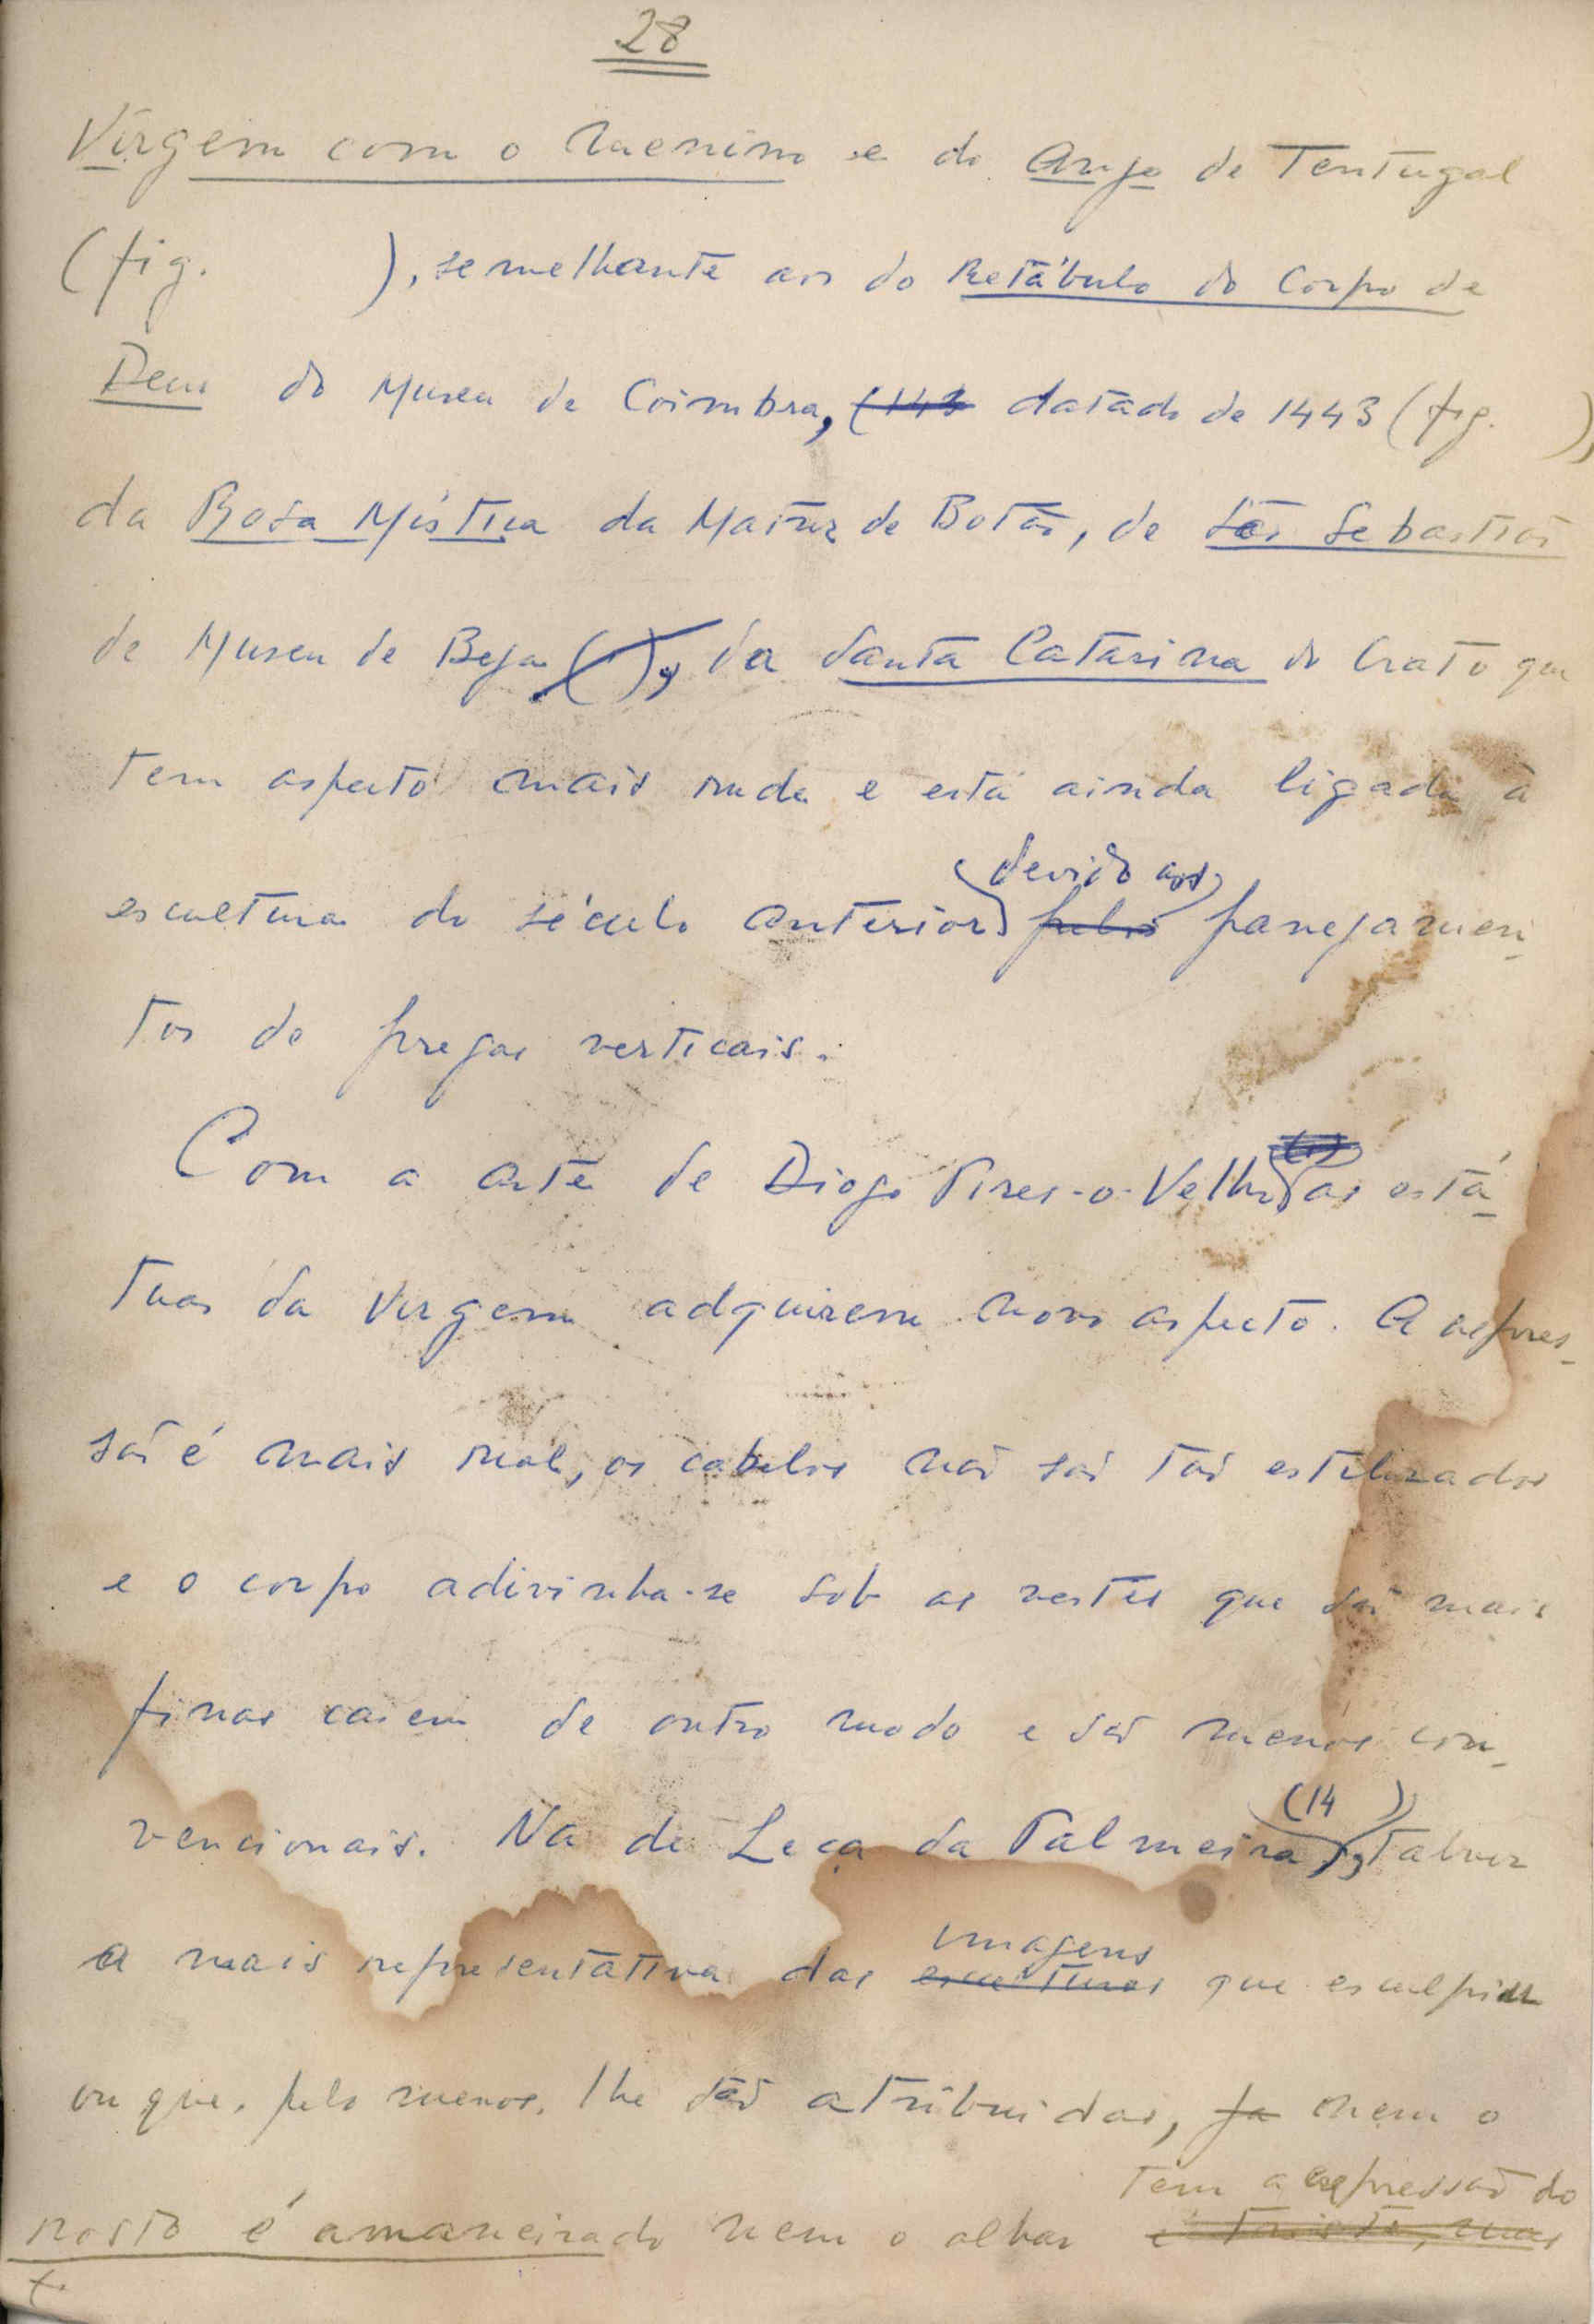 28
Virgem com o Menino e do Anjo de Tentugal
(fig. ), semelhante aos do Retábulo do Corpo de
Deus do Museu de Coimbra, (143 datado de 1443 (fig. ),
da Rosa Mística da Matriz de Botão, de São Sebastião
de Museu de Beja ( ), da Santa Catarina do Crato que
tem aspecto mais rude e está ainda ligada à
devido aos
escultura do século anterior pelos panejamen-
tos de pregas verticais.
Com a arte de Diogo Pires-o-Velho as está-
tuas da Virgem adquirem novo aspecto. A expres-
são é mais real, os cabelos não são tão estilizados
e o corpo adivinha-se sob as vestes que são mais
finas caiem de outro modo e são menos con-
(14 )
vencionais. Na de Leça da Palmeira, talvez
imagens
a mais representativa das esculturas que esculpiu
ou que, pelo menos, lhe são atribuidas, já nem o
tem a expressão do
rosto é amaneirado nem o olhar é triste, mas